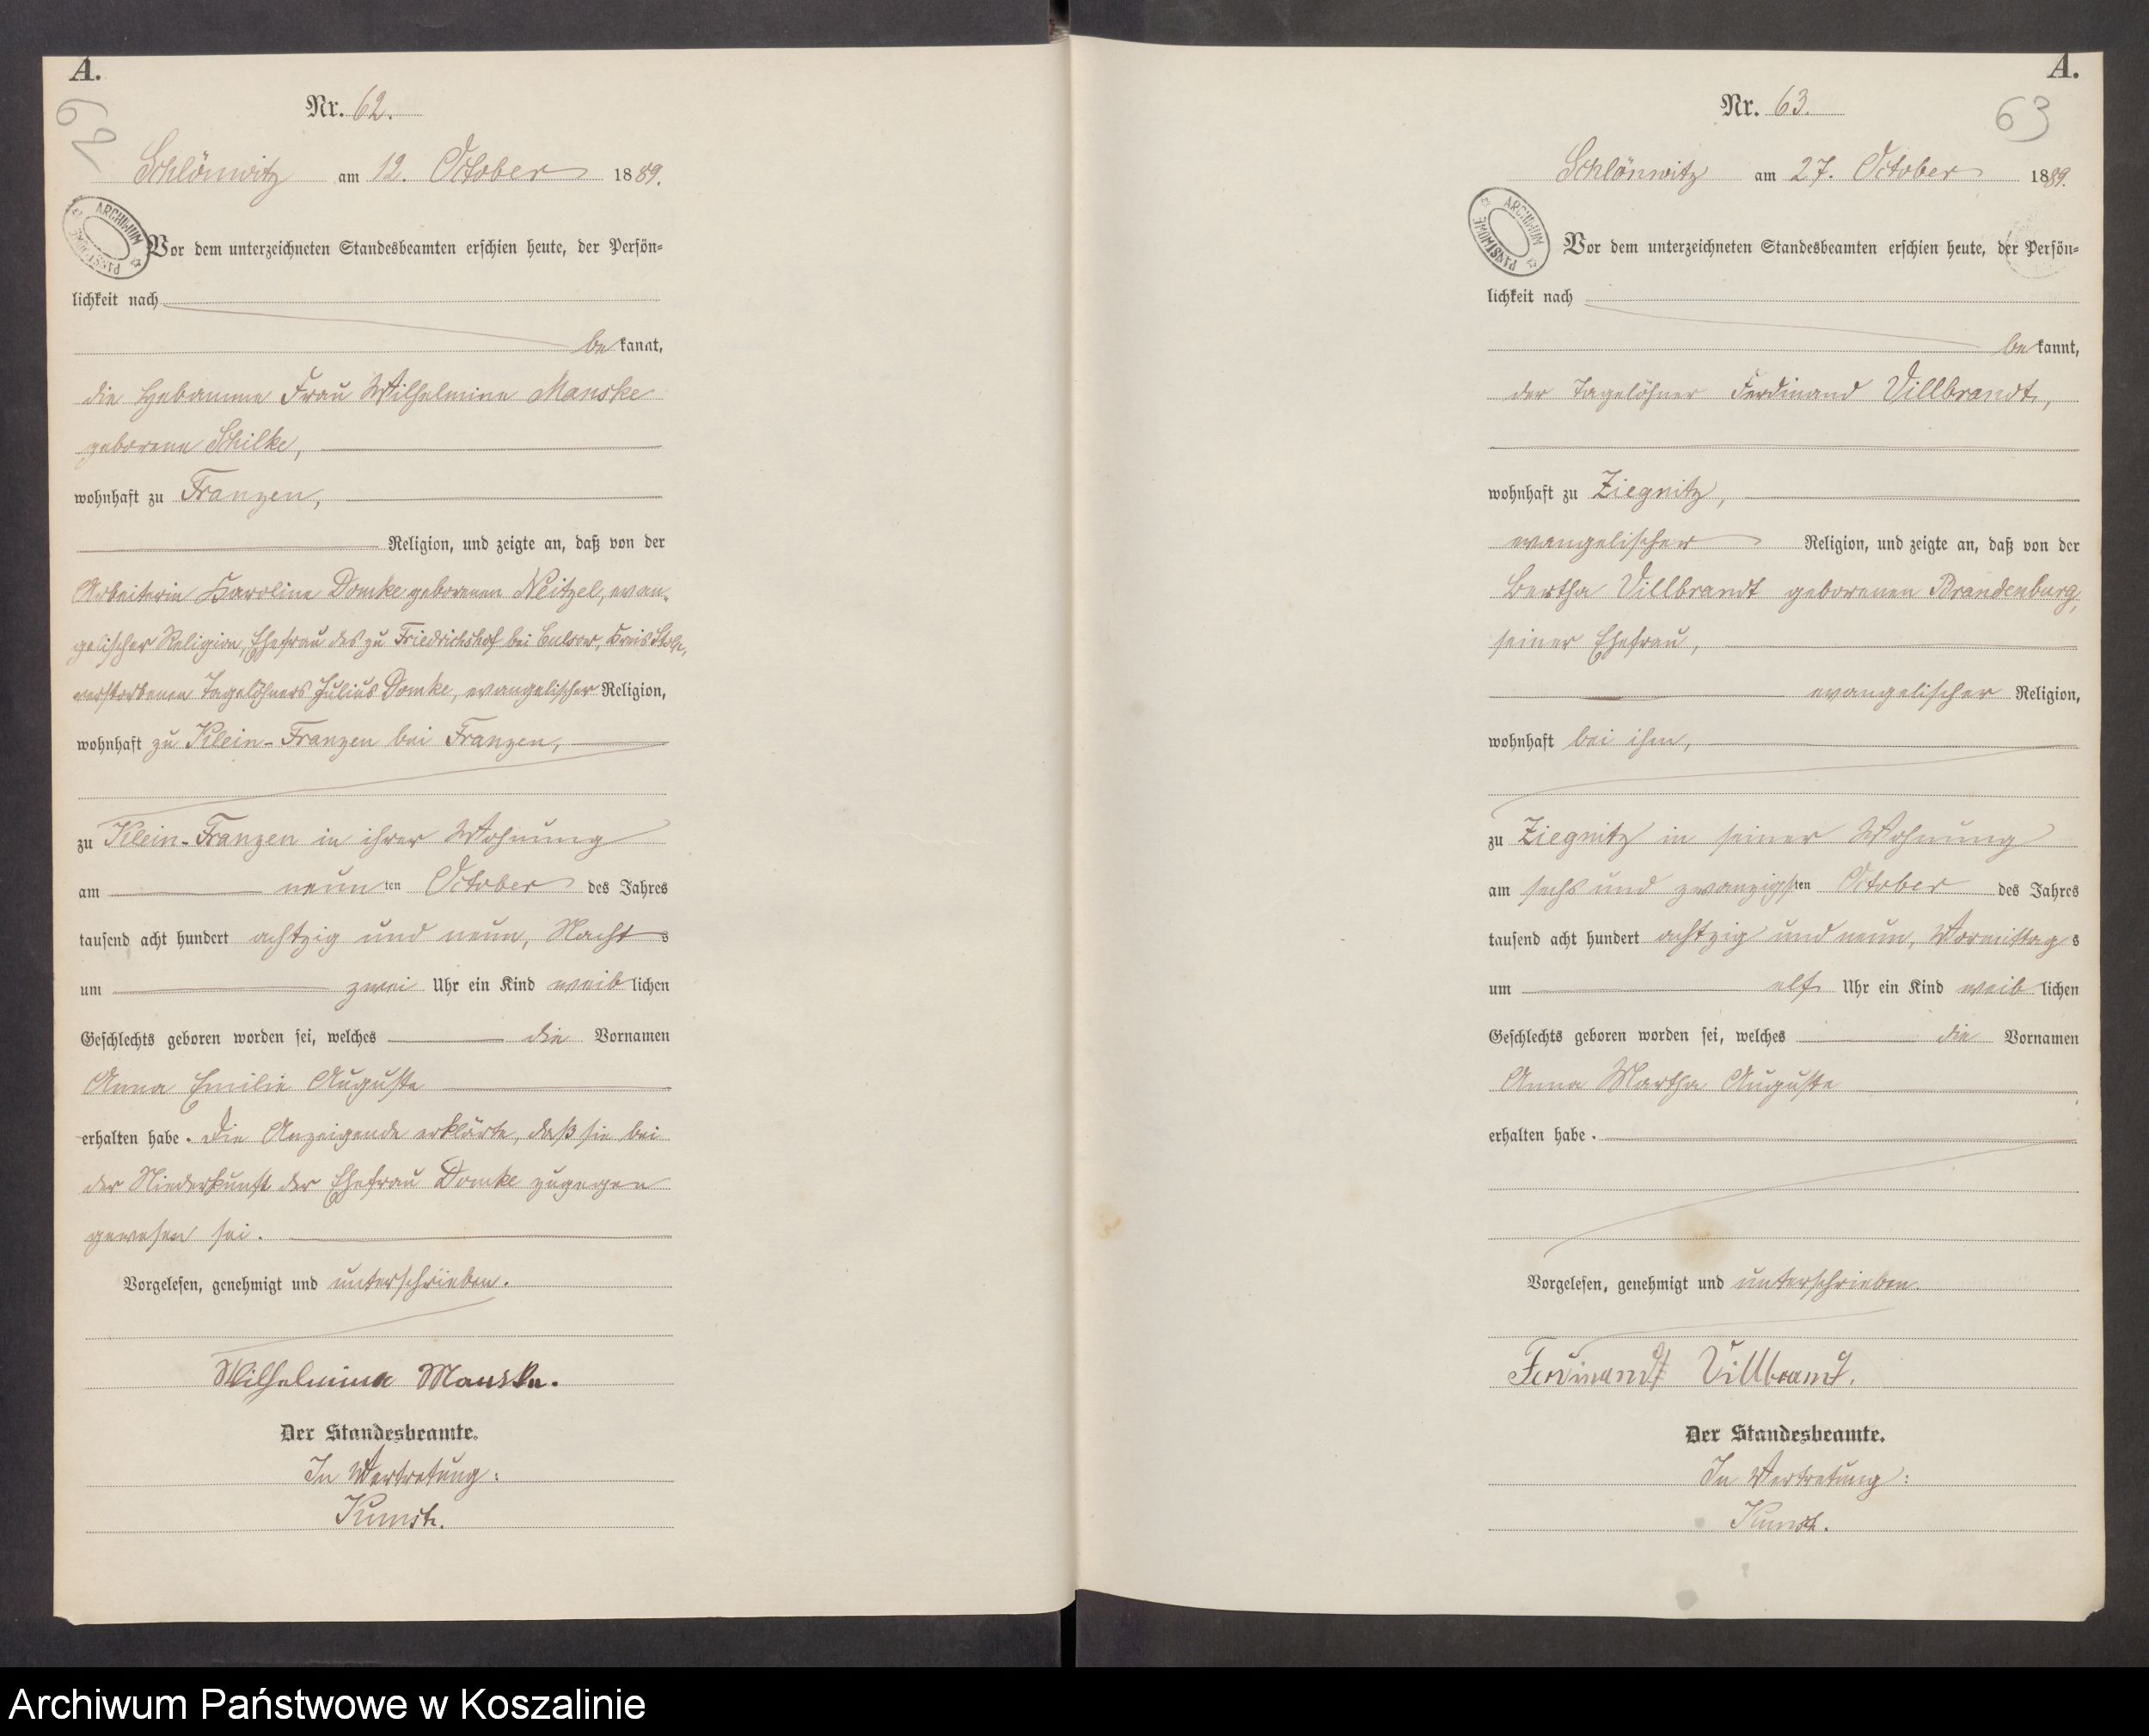 A.
62
Nr. 62.
Schlönwitz am 12. October 1889.
ARCHIWUM PAŃSTWOWE
Vor dem unterzeichneten Standesbeamten erschien heute, der Persön-
lichkeit nach
bekannt,
die Hebamme Frau Wilhelmine Manske
geborene Schilke,
wohnhaft zu Franzen,
Religion, und zeigte an, daß von der
Arbeiterin Karoline Domke geborenen Neitzel, evan-
gelischer Religion, Ehefrau des zu Friedrichshof bei Kreis Stolp,
verstorbenen Tagelöhners Julius Domke, evangelischer Religion,
wohnhaft zu Klein-Franzen bei Franzen,
zu Klein-Franzen in ihrer Wohnung
am neunten October des Jahres
tausend acht hundert achtzig und neun, Nachts
um zwei Uhr ein Kind weiblichen
Geschlechts geboren worden sei, welches die Vornamen
Anna Emilie Auguste
erhalten habe. Die Anzeigende erklärte, daß sie bei
der Niederkunft der Ehefrau Domke zugegen
gewesen sei.
Vorgelesen, genehmigt und unterschrieben.
Wilhelmine Manske.
Der Standesbeamte.
In Vertretung:
A.
63
Nr. 63.
Schlönwitz am 27. October 1889.
ARCHIWUM PAŃSTWOWE
Vor dem unterzeichneten Standesbeamten erschien heute, der Persön-
lichkeit nach
bekannt,
der Tagelöhner Ferdinand Villbrandt,
wohnhaft zu Ziegnitz,
evangelischer Religion, und zeigte an, daß von der
Bertha Villbrandt geborenen Brandenburg,
seiner Ehefrau,
evangelischer Religion,
wohnhaft bei ihm,
zu Ziegnitz in seiner Wohnung
am sechs und zwanzigsten October des Jahres
tausend acht hundert achtzig und neun, Vormittags
um elf Uhr ein Kind weiblichen
Geschlechts geboren worden sei, welches die Vornamen
Anna Martha Auguste
erhalten habe.
Vorgelesen, genehmigt und unterschrieben.
Ferdinandt Villbrandt.
Der Standesbeamte.
In Vertretung:
Archiwum Państwowe w Koszalinie